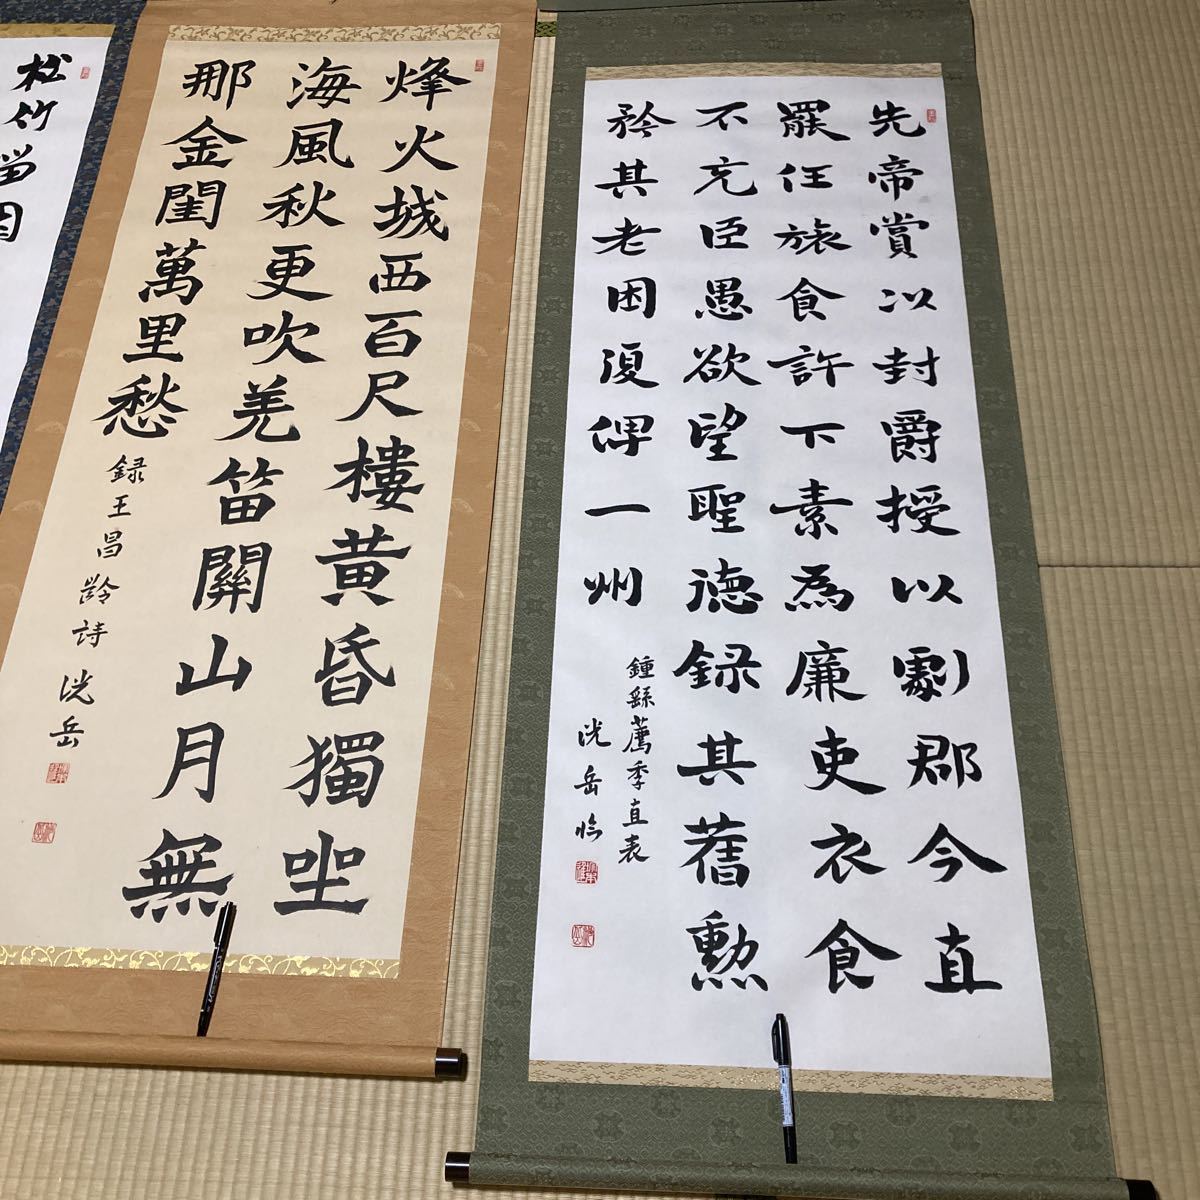 先帝賞以封爵授以劇郡今直
罷任旅食許下素為廉吏衣食
不充臣愚欲望聖德録其舊勲
矜其老困復俾一州
鍾繇薦季直表
洸岳臨
烽火城西百尺樓黄昏獨坐
海風秋更吹羌笛關山月無
那金閨萬里愁
録王昌齡詩 洸岳
松竹留因